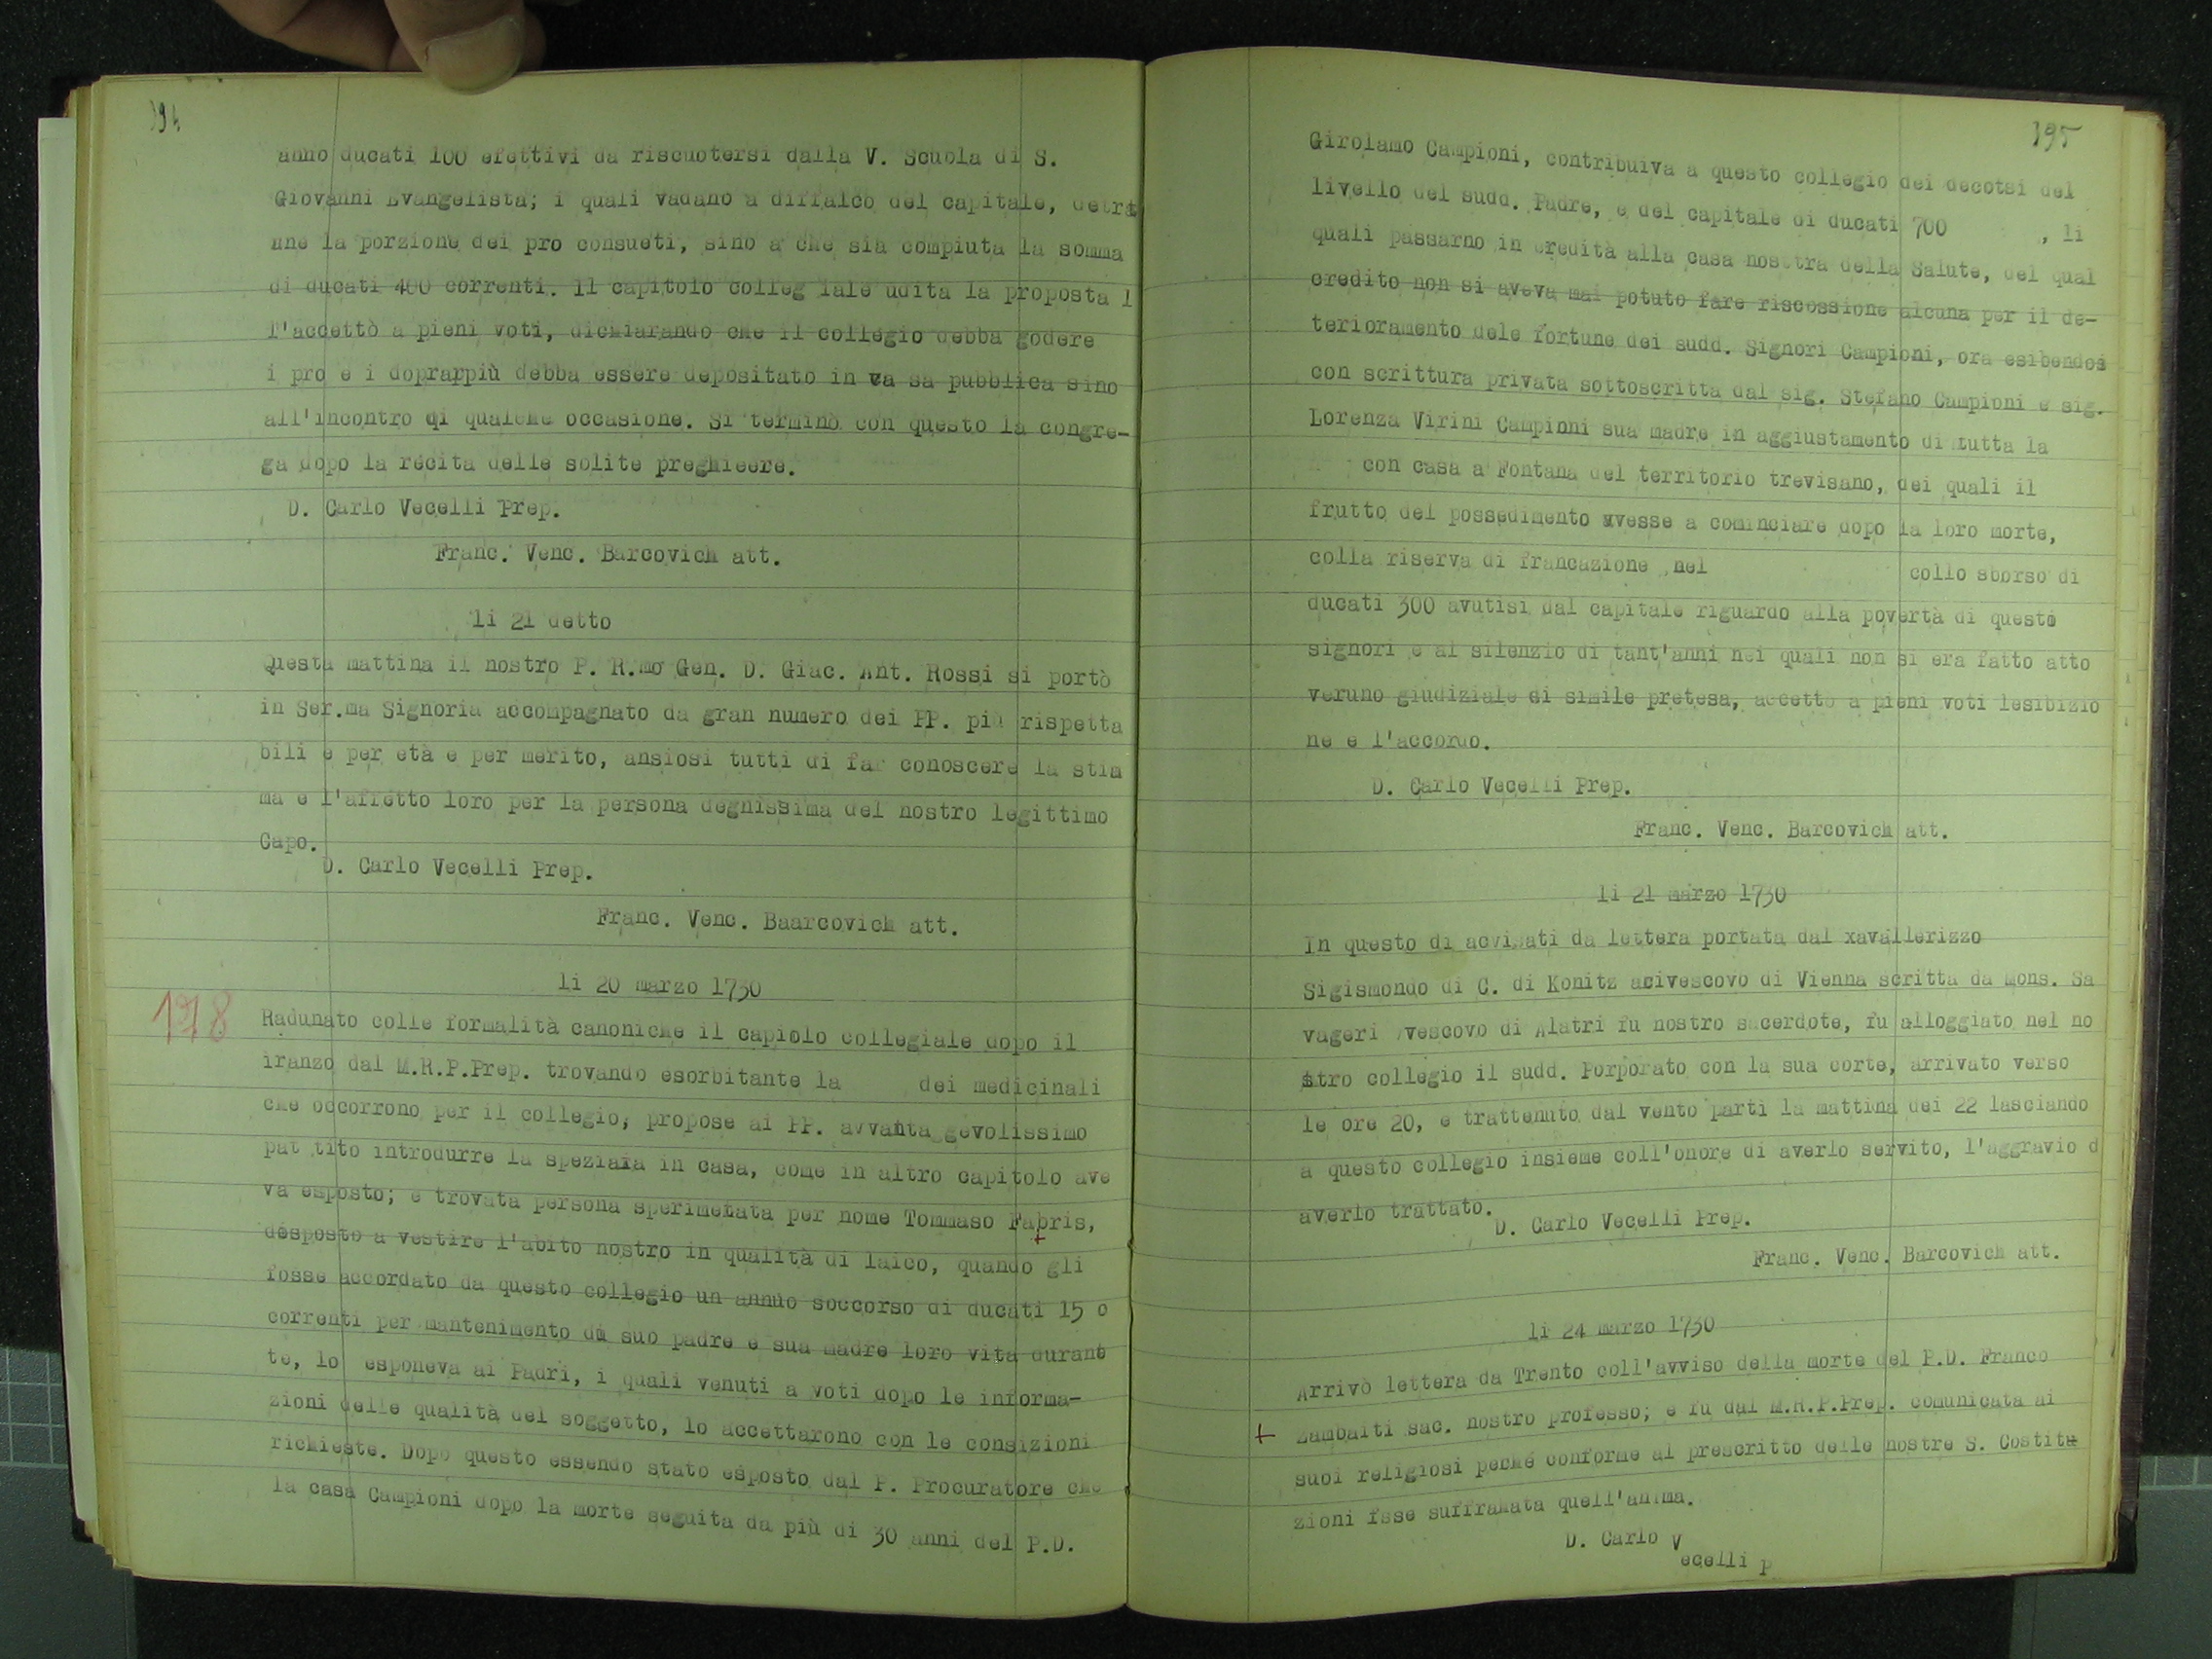 394
anno ducati 100 efettivi da riscuotersi dalla V. Scuola di S.
Giovanni Evangelista; i quali vadano a diffalco del capitale, detra
nne la porzione dei pro consueti, sino a che sia compiuta la somma
di ducati 400 correnti. Il capitolo colleg iale udita la proposta l
l'accettò a pieni voti, dichiarando che il collegio debba godere
i pro e i doprarpiù debba essere depositato in va sa pubblica sino
all'incontro di qualche occasione. Si terminò con questo la congre-
ga dopo la recita delle solite preghieere.
D. Carlo Vecelli Prep.
Franc. Venc. Barcovich att.
li 21 detto
Questa mattina il nostro P. R.mo Gen. D. Giac. Ant. Rossi si portò
in Ser.ma Signoria accompagnato da gran numero dei PP. più rispetta
bili e per età e per merito, ansiosi tutti di far conoscere la stim
ma e l'affetto loro per la persona degnissima del nostro legittimo
Capo.
D. Carlo Vecelli Prep.
Franc. Venc. Baarcovich att.
li 20 marzo 1730
1918
Radunato colle formalità canoniche il capiolo collegiale dopo il
iranzo dal M.R.P.Prep. trovando esorbitante la dei medicinali
che occorrono per il collegio, propose ai PP. avvanta gevolissimo
pat tito introdurre la speziaia in casa, come in altro capitolo ave
va esposto; e trovata persona sperimetata per nome Tommaso Fabris,
desposto a vestire l'abito nostro in qualità di laico, quando gli
fosse accordato da questo collegio un annuo soccorso di ducati 15 c
correnti per mantenimento di suo padre e sua madre loro vita durant
te, lo esponeva ai Padri, i quali venuti a voti dopo le informa-
zioni delle qualità del soggetto, lo accettarono con le consizioni
richieste. Dopo questo essendo stato esposto dal P. Procuratore che
la casa Campioni dopo la morte seguita da più di 30 anni del P.D.
395
Girolamo Campioni, contribuiva a questo collegio dei decotsi del
livello del sudd. Padre, e del capitale di ducati 700 , li
quali passarno in eredità alla casa nosttra della Salute, del qual
credito non si aveva mai potuto fare riscossione alcuna per il de-
terioramento dele fortune dei sudd. Signori Campioni, ora esibendos
con scrittura privata sottoscritta dal sig. Stefano Campioni e sig.
Lorenza Virini Campioni sua madre in aggiustamento di tutta la
con casa a Fontana del territorio trevisano, dei quali il
frutto del possedimento avesse a cominciare dopo la loro morte,
colla riserva di francazione nel collo sborso di
ducati 300 avutisi dal capitale riguardo alla povertà di questi
signori e al silenzio di tant'anni nei quali non si era fatto atto
veruno giudiziale di simile pretesa, accetto a pieni voti lesibizio
ne e l'accordo.
D. Carlo Vecelli Prep.
Franc. Venc. Barcovich att.
li 21 marzo 1730
In questo di acvisati da lettera portata dal xavallerizzo
Sigismondo di C. di Konitz acivescovo di Vienna scritta da Mons. Sa
vageri vescovo di Alatri fu nostro sacerdote, fu alloggiato nel no
stro collegio il sudd. Porporato con la sua corte, arrivato verso
le ore 20, e trattenuto dal vento partì la mattina dei 22 lasciando
a questo collegio insieme coll'onore di averlo servito, l'aggravio d
averlo trattato.
D. Carlo Vecelli Prep.
Franc. Venc. Barcovich att.
li 24 marzo 1730
Arrivò lettera da Trento coll'avviso della morte del P.D. Franco
+ Zambaiti sac. nostro professo; e fu dal M.R.P.Prep. comunicata ai
suoi religiosi perché conforme al prescritto delle nostre S. Costitu
zioni fsse suffrahata quell'anima.
D. Carlo V
ecelli p